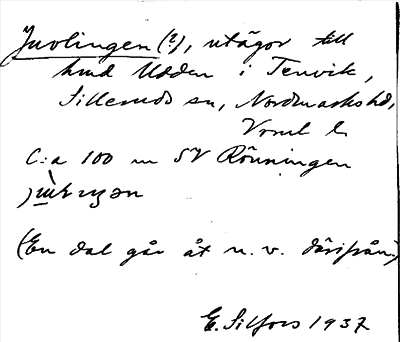 Juvlingen (?), utägor till
hmd Udden i Tenvik,
Sillerud sn, Nordmarks hd,
Vrml l.
C:a 100 m SV Rönningen
(En dal går åt n. v. därifrån)
E. Silfors 1937